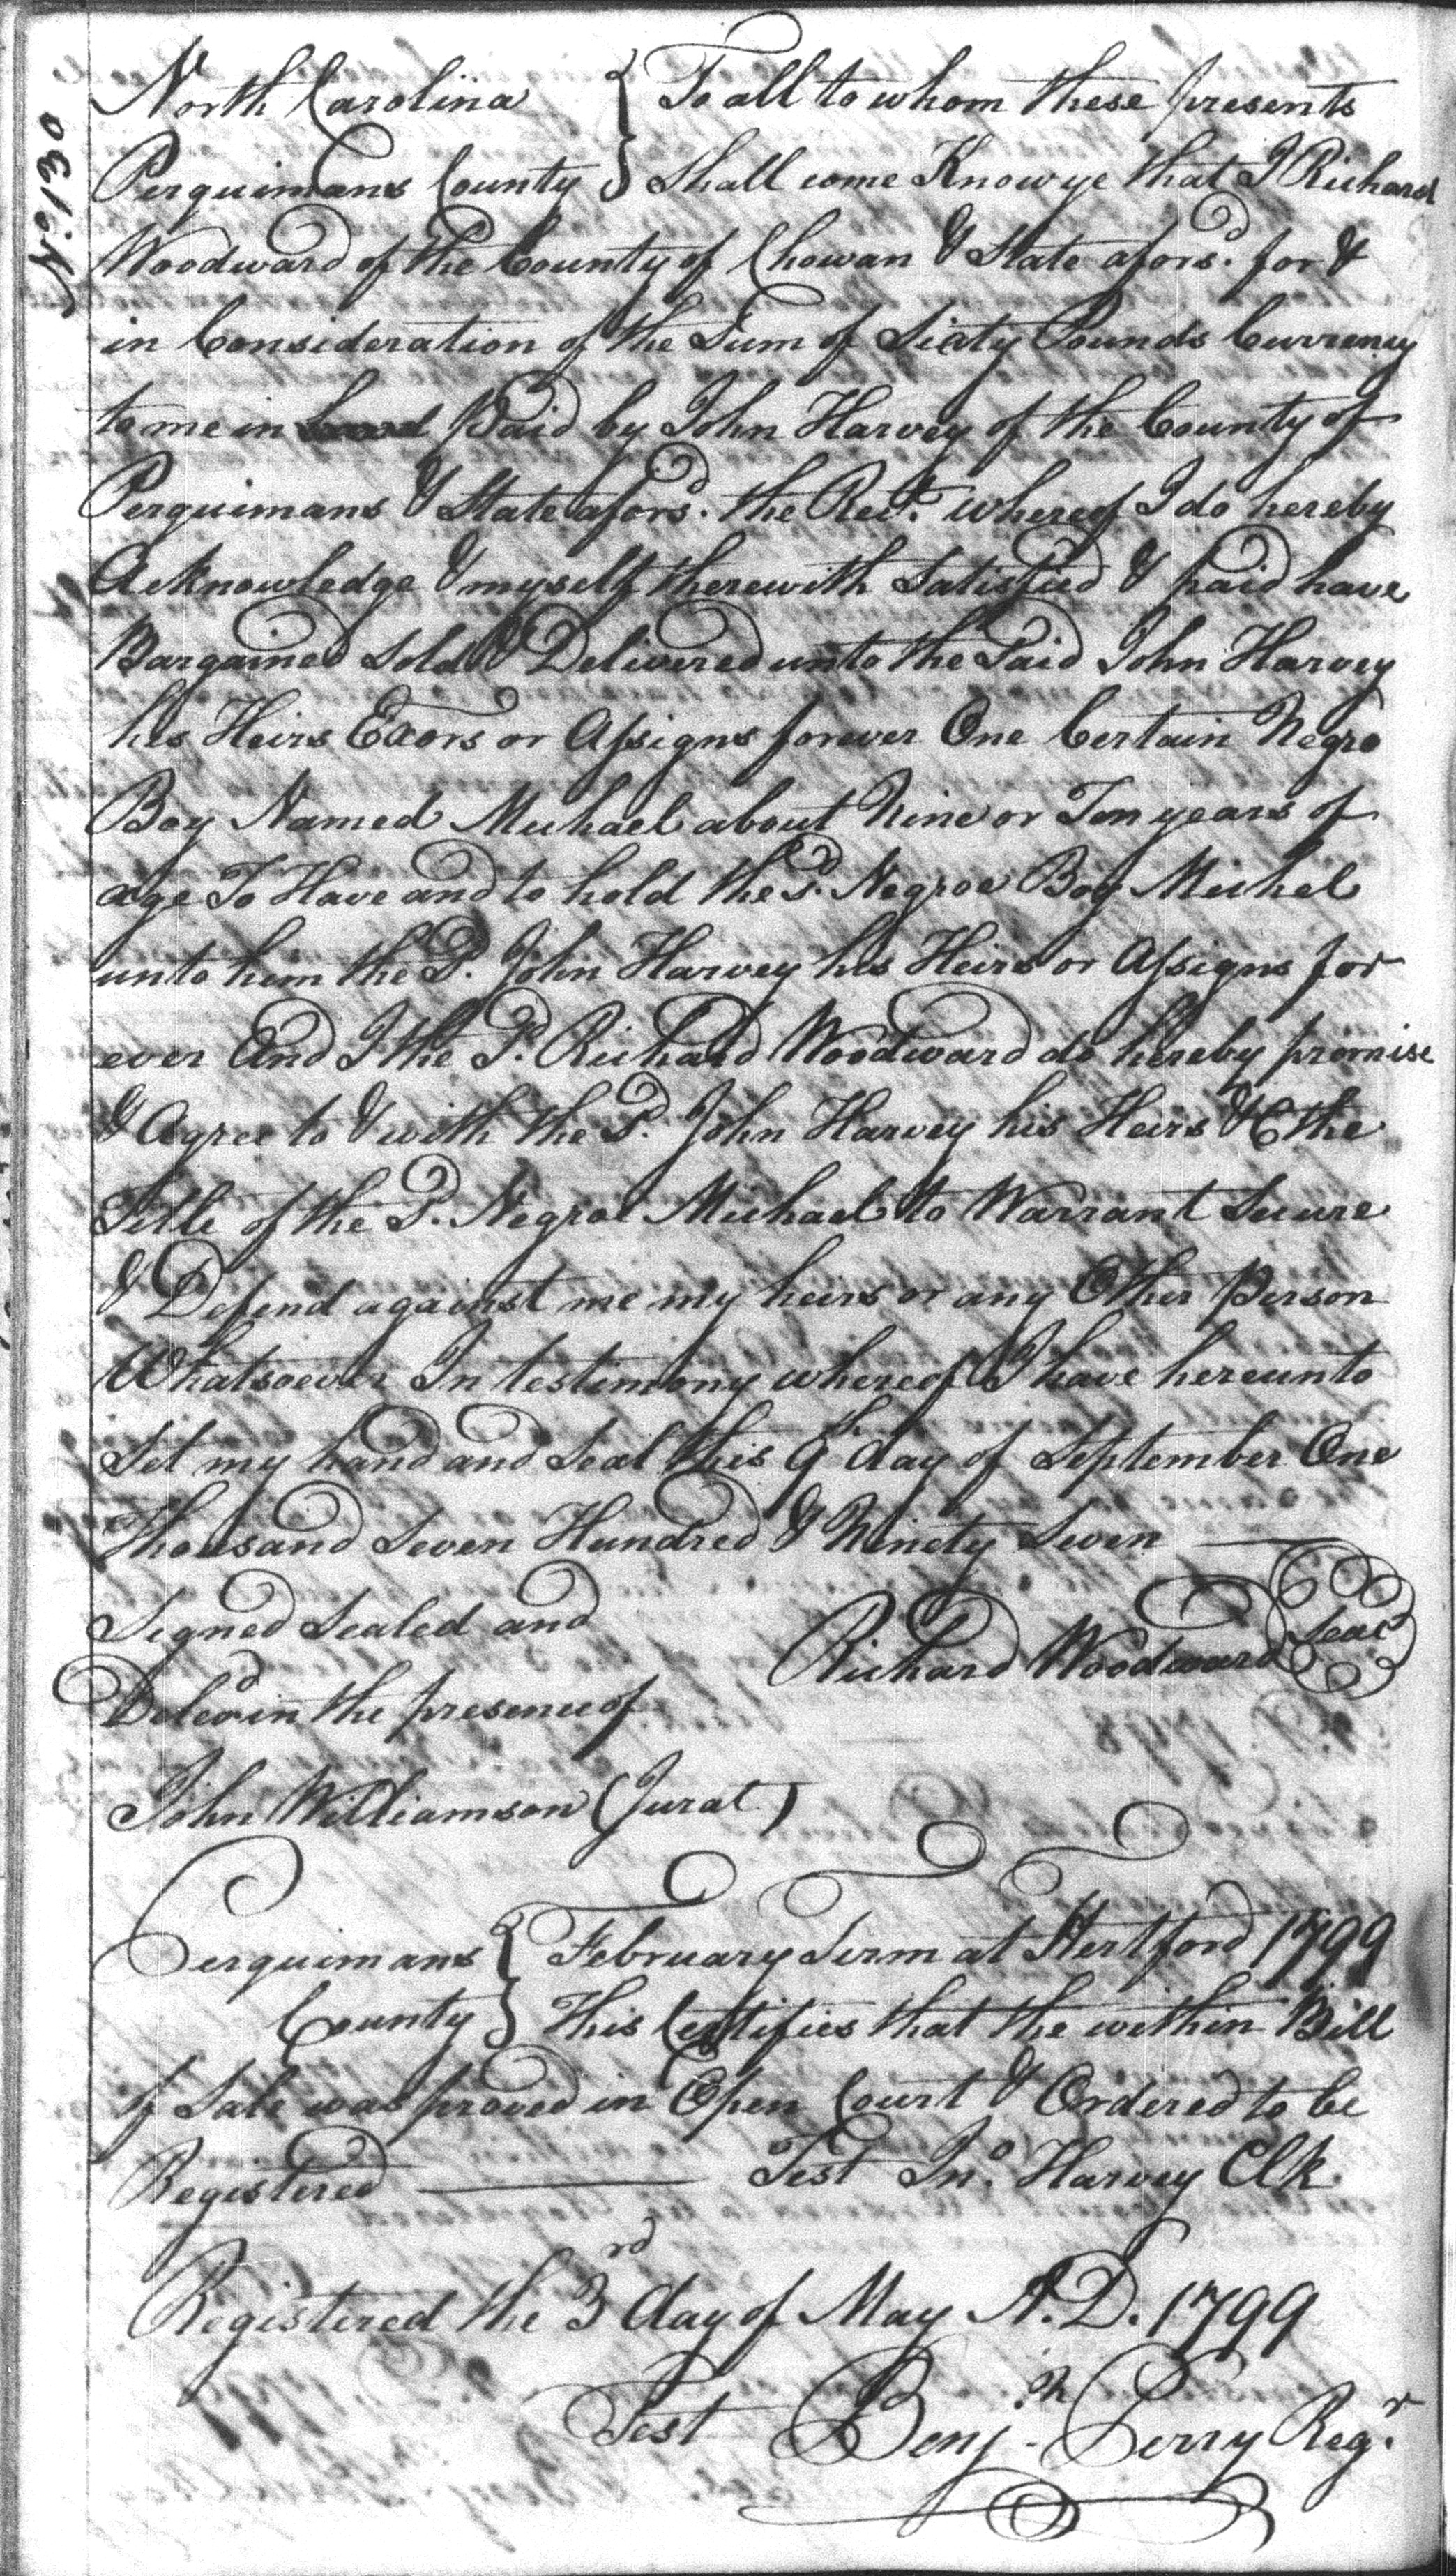 No. 130
North Carolina } To all to whom these presents
Perquimans County } Shall come Know ye that I Richard
Woodward of the County of Chowan & State afors.d for &
in Consideration of the Sum of Sixty Pounds Currency
to me in hand Paid by John Harvey of the County of
Perquimans & State afors.d the Rect. whereof I do hereby
Acknowledge & myself therewith Satisfied & paid have
Bargained Sold & Delivered unto the Said John Harvey
his Heirs Exors or Assigns forever One Certain Negro
Boy Named Michael about Nine or Ten years of
age To Have and to hold the Sd. Negroe Boy Michel
unto him the Sd. John Harvey his Heirs or Assigns for
ever And I the Sd. Richard Woodward do hereby promise
& Agree to & with the Sd. John Harvey his Heirs &C the
Title of the Sd. Negroe Michael to Warrant Secure
& Defend against me my heirs or any Other Person
Whatsoever In testimony whereof I have hereunto
Set my hand and Seal this 9th day of September One
Thousand Seven Hundred & Ninety Seven
Signed Sealed and
Richard Woodward Seal
Deled in the presence of
John Williamson (Jurat)
Perquimans } February Term at Hertford 1799
County } This Certifies that the within Bill
of Sale was proved in Open Court & Ordered to be
Registered Test Jno. Harvey Clk.
Registered the 3rd day of May A.D. 1799
Test Benjn. Perry Regr.